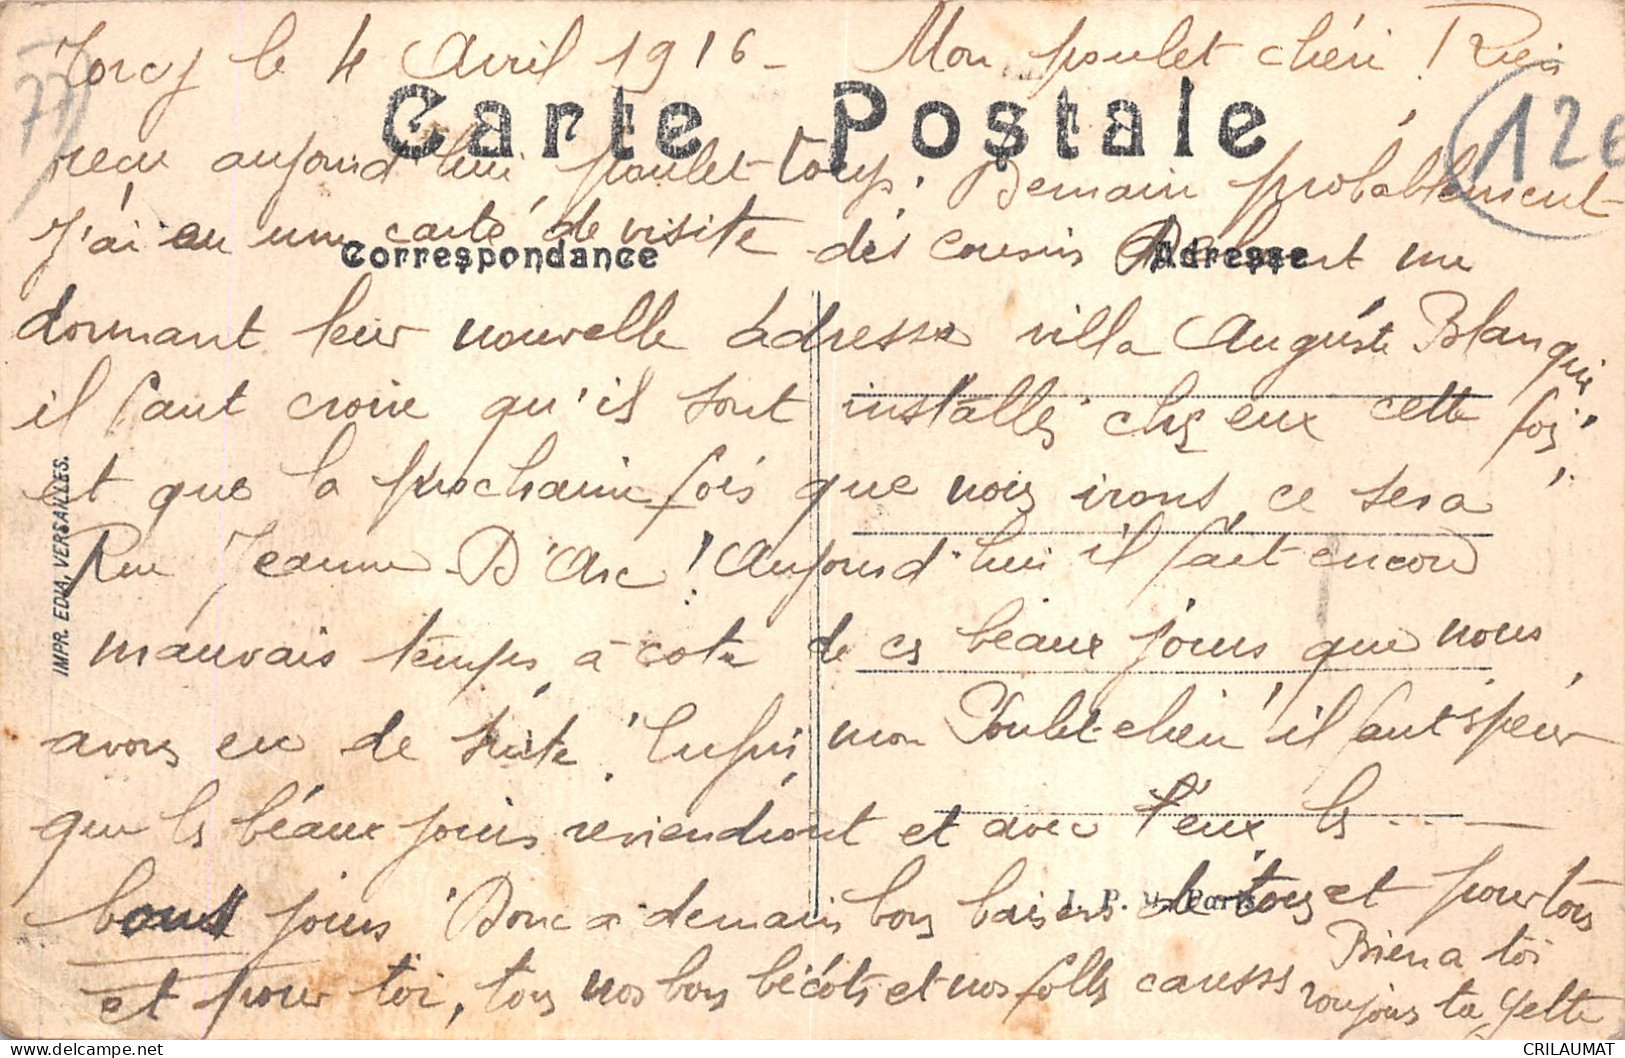 Torcy le 4 Avril 1916 - Mon poulet chéri ! Rien
77
Carte Postale
12€
reçu aujourd'hui poulet-loup. Demain probablement
J'ai eu une carte de visite des cousins me
Correspondance
Adresse
donnant leur nouvelle adresse villa Auguste Blanqui
il faut croire qu'il sont installés chez eux cette fois,
et que la prochaine fois que nous irons, ce sera
Rue Jeanne D'Arc ! Aujourd'hui il fait encore
mauvais temps, à cote de ces beaux jours que nous
avons eu de suite. Enfin, mon Poulet-chéri il faut spérer
que les béaux jours reviendront et avec l'eux, les ... —
bons jours. Donc a demain bons baisers de tous et pour tous
I. P. M. Paris
et pour toi, tous nos bons bécots et nos folles caresses
Bien a toi
toujours ta Yette
IMPR. EDIA, VERSAILLES.
CRILAUMAT